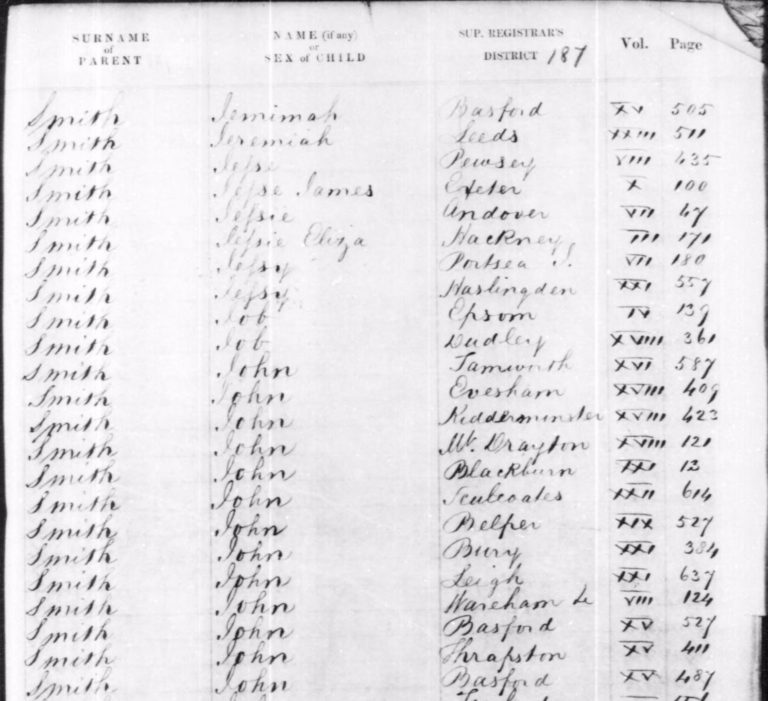 SURNAME of PARENT NAME (if any) or SEX of CHILD SUP. REGISTRAR'S DISTRICT 187 Vol. Page
Smith Jemimah Basford XV 505
Smith Jeremiah Leeds XXIII 511
Smith Jesse Pewsey VIII 435
Smith Jesse James Exeter X 100
Smith Jessie Andover VII 47
Smith Jessie Eliza Hackney III 171
Smith Jessy Portsea I. VII 180
Smith Jessy Haslingden XXI 557
Smith Job Epsom IV 139
Smith Job Dudley XVIII 361
Smith John Tamworth XVI 587
Smith John Evesham XVIII 409
Smith John Kidderminster XVIII 423
Smith John Mt. Drayton XVIII 121
Smith John Blackburn XXI 13
Smith John Sculcoates XXII 614
Smith John Belper XIX 527
Smith John Bury XXI 384
Smith John Leigh XXI 637
Smith John Wareham &c VIII 124
Smith John Basford XV 527
Smith John Thrapston XV 411
Smith John Basford XV 487